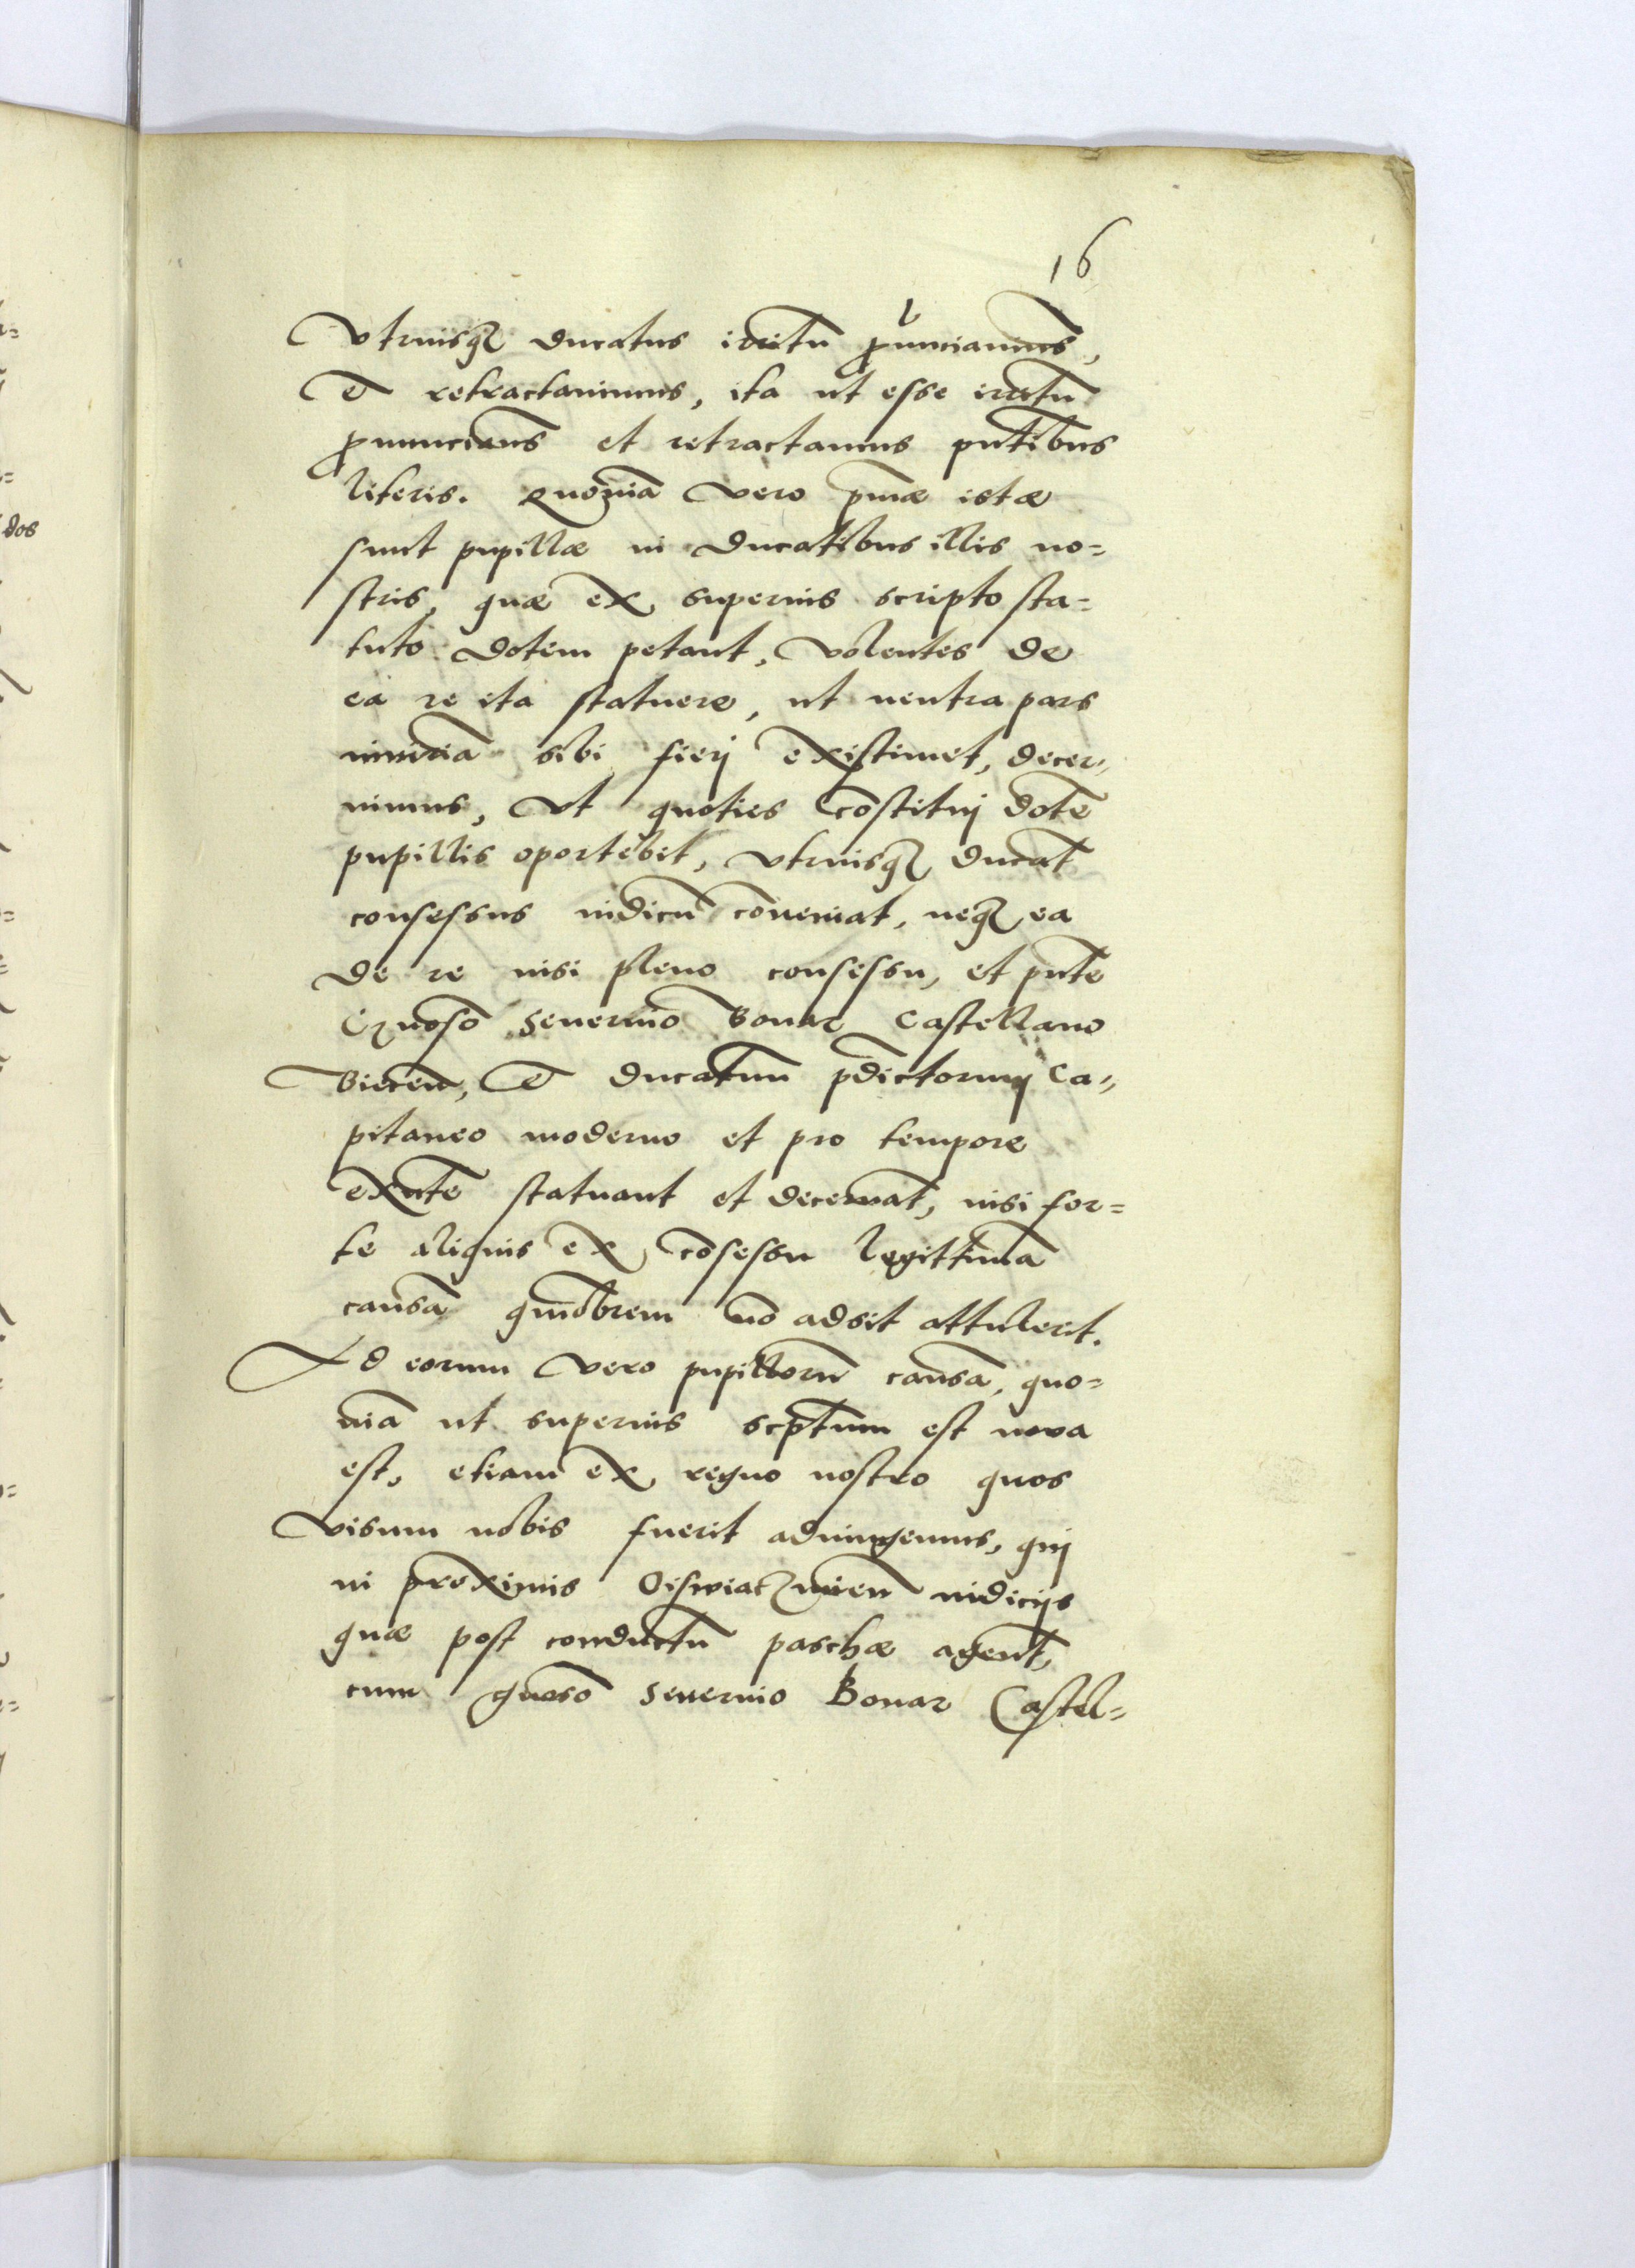 16
Vtriusq₃ ducatus irritu ꝓnunciauimꝰ,
Et retractauimus, ita ut esse irritū
ꝓnunciamꝰ et retractamus pn̄tibus
literis. Quoniā vero pm̄æ istæ
sunt pupillæ in ducatibus illis no=
stris, quæ ex superius scripto sta=
tuto dotem petant, volentes de
ea re ita statuere, ut neutra pars
iniuriā sibi fierj existimet, decer=
nimus, Vt quoties cōstituj dotē
pupillis oportebit, vtriusq₃ ducat̄
consessus iudicū cōueniat, neq₃ ea
de re nisi pleno consessu, et pn̄te
Gn̄oso Seuerino Bonar Castellano
Biecen̄, Et ducatuū p̄dictorum Ca=
pitaneo moderno et pro tempore
exn̄te statuant et decernāt, nisi for=
te aliquis ex cōsessu legittimā
causā quāobrem nō adsit attulerit.
Ad eorum vero pupillorū causā, quo=
niā ut superius scptum est noua
est, etiam ex regno nostro quos
visum nobis fuerit adiungemus, quj
in proximis Oswiaczimien̄ iudicijs
quæ post conductū paschæ agent̄,
cum gn̄oso Seuerino Bonar Castel=
dos